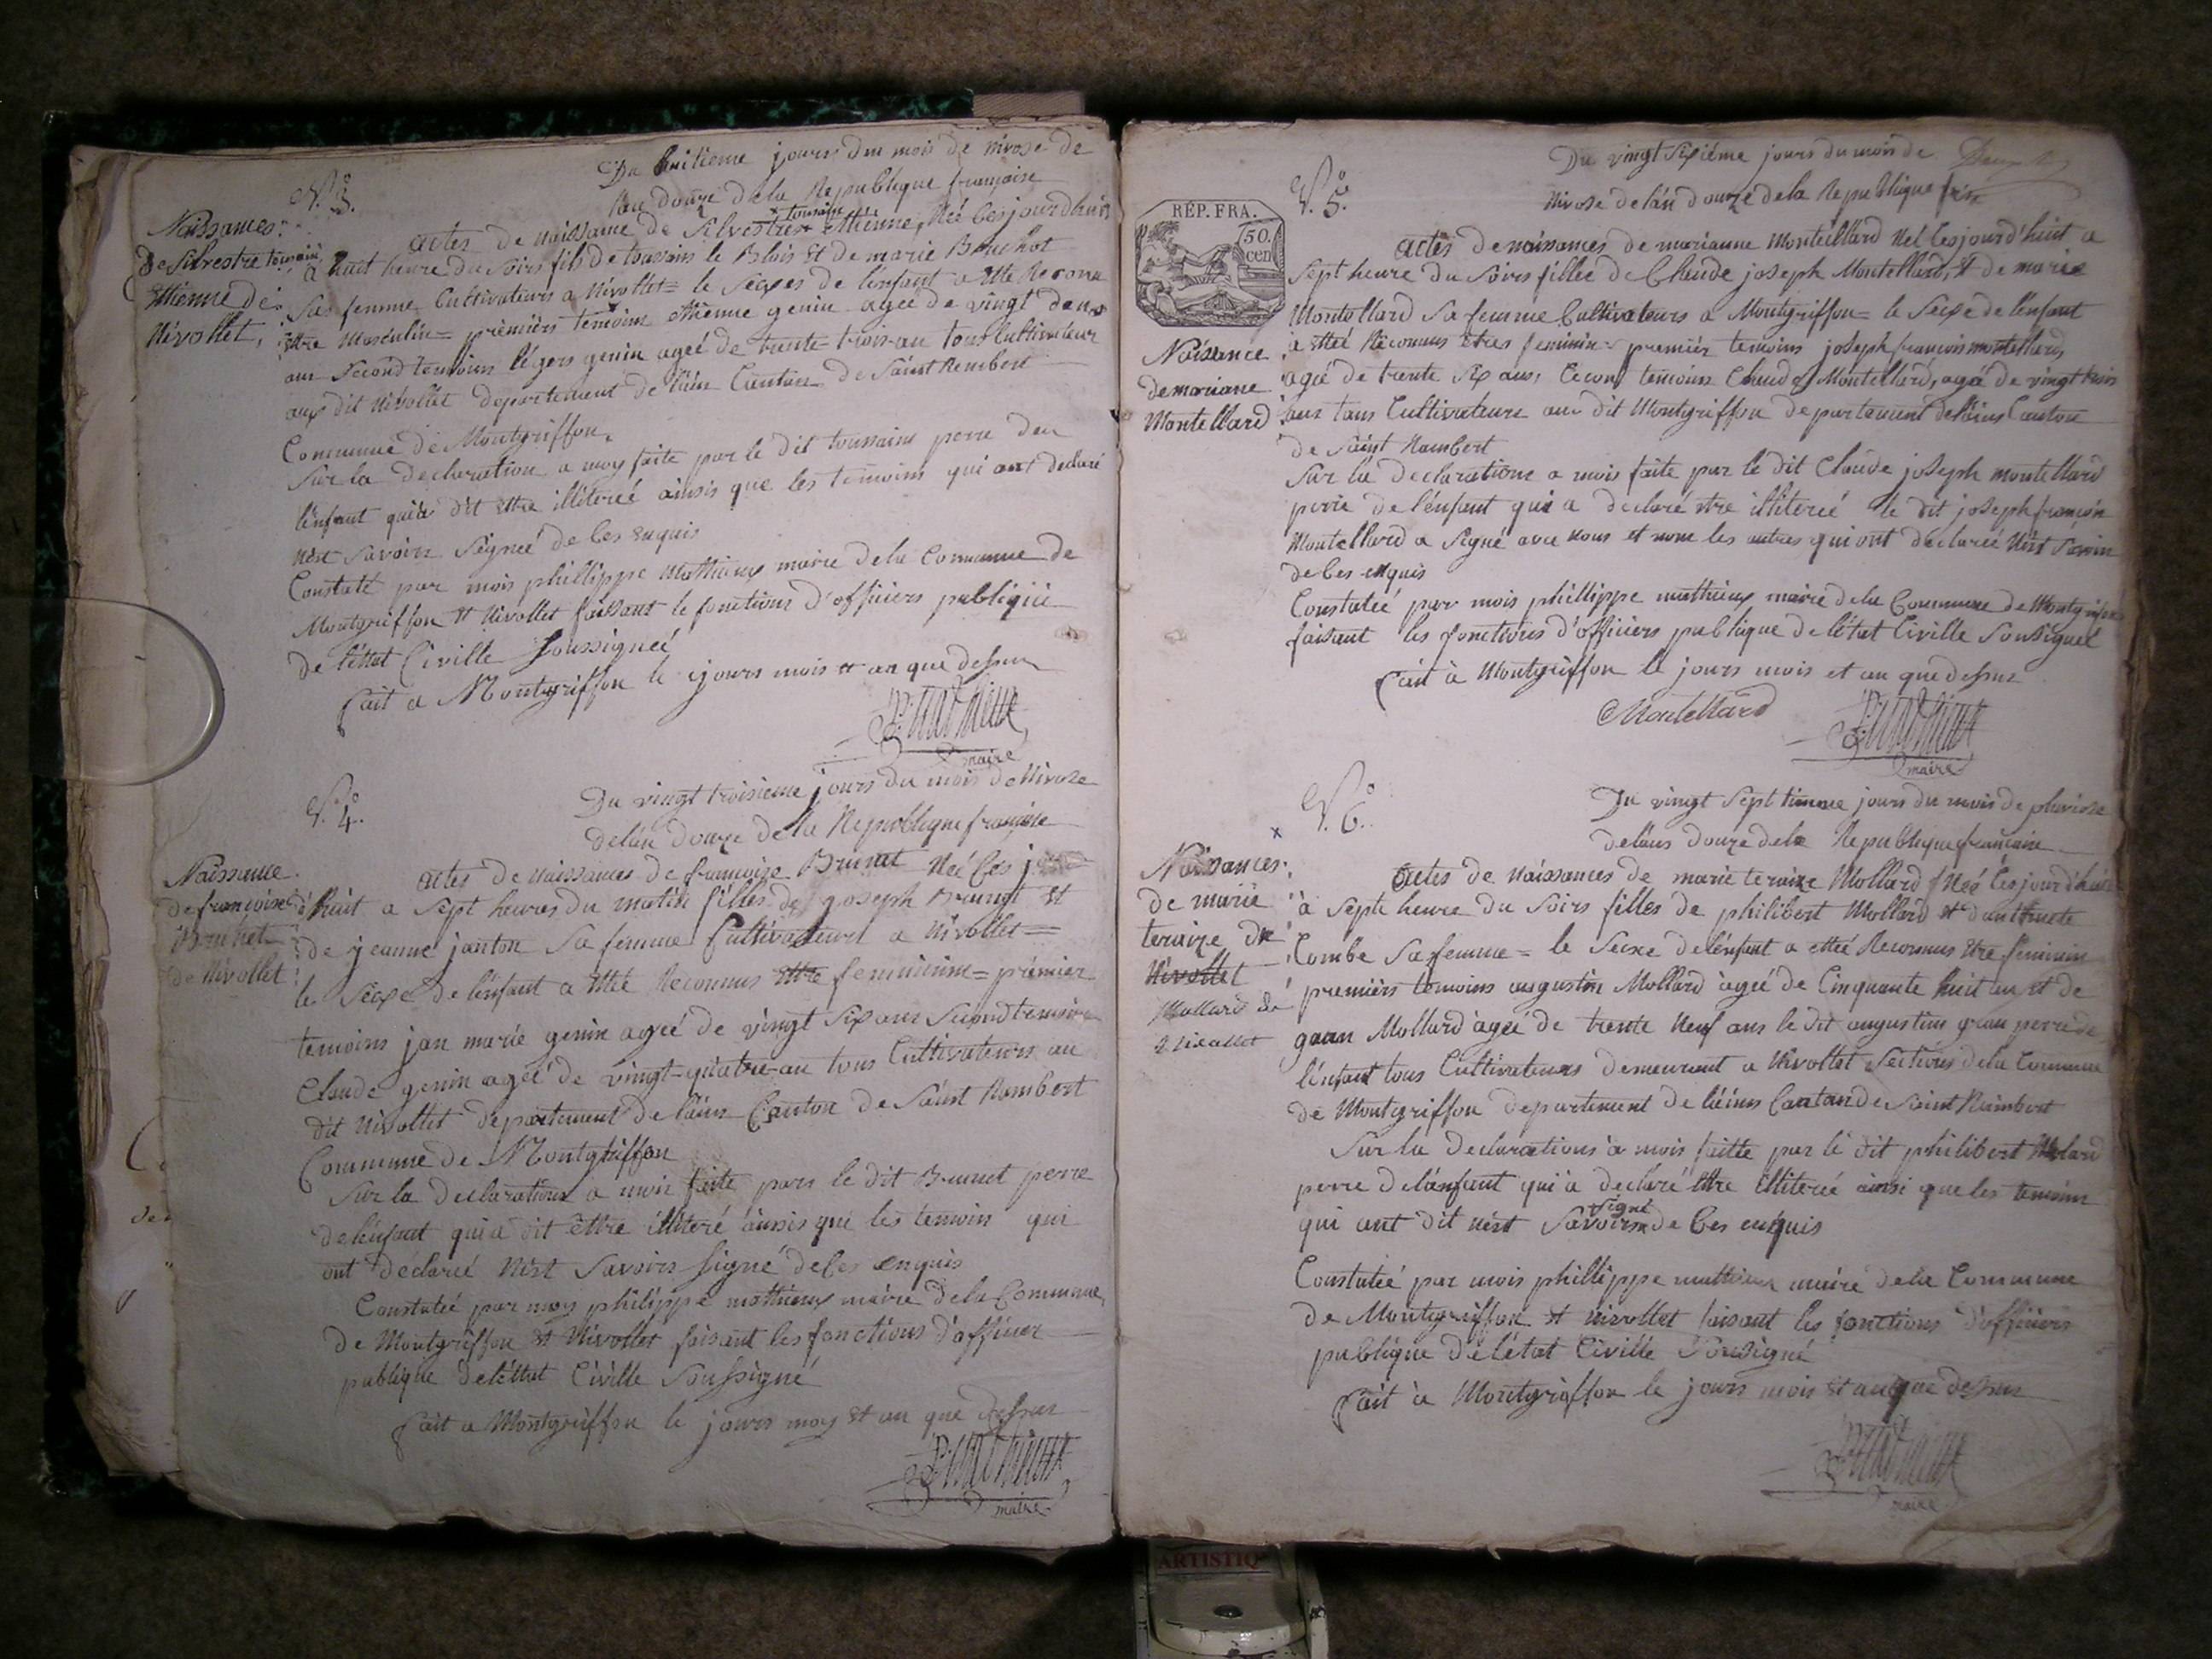 N.º 3.
Du huitieme jours du mois de nivose de
l'an douze de la Republique françoise
Naissances
de Silvestre tousain
Ettienne de
Nivollet
actes de naissance de Silvestre tousain Ettienne, Néé Ces jourdhuis
a huit heure du Soirs fils de toussain le Blois Et de marie
Sa femme Cultivateurs a Nivollet = le Sexes de l'enfant a Etté Reconu
Ettre Masculin = premiers temoins ettienne genin ageé de vingt deux
ans Second temoins légers genin ageé de trente trois an tous Cultivateur
aux dit Nivollet departement de l'ain Canton de Saint Rembert
Commune de Montgriffon
Sur la declaration a moy faite par le dit toussains perre deu
l'enfant qui a dit Ettre illitereé ainsis que les temoins qui ont declaré
nest Savoirs Signeé de Ces Enquis
Constaté par mois phillippe Mathieux maire de la Commune de
Montgriffon Et Nivollet faissant le fonctions d'officiers publique
de l'ettat Civille Soussigneé
fait a Montgriffon le jours mois et an que dessus
P. Mathieux
maire
N.º 4.
Du vingt troisieme jours du mois de Nivose
de l'an douze de la Republique françoise
Naissance
de françoise
Brunet
de Nivollet
actes de Naissances de françoise Brunet Néé Ces jour
d'huit a Sept heures du matin filles de joseph Brunet Et
de jeanne janton Sa femme Cultivateurs a Nivollet =
le Sexe de l'enfant a Etté Reconnus Ettre feminim = prémier
temoins jan marie genin ageé de vingt Six ans Second temoins
Claude genin ageé de vingt-quatre-an tous Cultivateurs au
dit Nivollet departement de l'ain Canton de Saint Rambert
Commune de Montgriffon
Sur la declarations a mois faite pars le dit Brunet perre
de l'enfant qui a dit Ettre illiteré ainsis que les temoins qui
ont declareé Nest Savoirs Signé de Ces enquis
Constateé par moy philippe mathieux maire de la Commune
de Montgriffon Et Nivollet faisant les fonctions d'officier
publique de l'ettat Civille Soussigné
fait a Montgriffon le jours moy Et an que dessus
P. Mathieux
maire
RÉP. FRA.
50.
cen
N.º 5.
Du vingt Sixiéme jours du mois de
Nivose de l'an douze de la Republique
Naissance
de mariane
Montellard
actes de naissances de marianne Montellard Neé Ces jourd'huit a
Sept heure du Soirs filleé de Claude joseph Montellard, Et de marie
Montellard Sa femme Cultivateurs a Montgriffon = le Sexe de l'enfant
a Etteé Reconnus Ettres feminin = premiér temoins joseph françois montellard
ageé de trente Six ans, Second temoins Claude Montellard, ageé de vingt trois
ans tous Cultivateurs au dit Montgriffon departement de l'ains Canton
de Saint Rambert
Sur la declarations a mois faite par le dit Claude joseph montellard
perre de l'enfant qui a declaré Etre illitereé le dit joseph françois
Montellard a Signé avec nous et nom les autres qui ont declareé Nest Savoir
de Ces enquis
Constateé par mois phillippe mathieux maire de la Commune de Montgriffon
faisant les fonctions d'officiers publique de l'etat Civille Soussigneé
fait à Montgriffon le jours mois et an que dessus
Montellard
P. Mathieux
maire
N.º 6.
Du vingt Septtiemme jours du mois de pluviose
de l'ans douze de la Republique françoise
x
Naissances
de marie
teraize de
Nivollet
Mollard de
Nivollet
Actes de Naissances de marie teraize Mollard Néé Ces jourd'huit
à Sept heure du Soirs filles de philibert Mollard Et
Combe Sa femme = le Sexe de l'enfant a etteé Reconnus Etre feminin
premiérs temoins augustin Mollard ageé de Cinquante huit an et de
gean Mollard ageé de trente Neuf ans le dit augustin gran perre de
l'enfant tous Cultivateurs demeurant a Nivollet Sections de la Commune
de Montgriffon departement de l'ains Canton de Saint Rambert
Sur la declarations a mois faitte par le dit philibert Molard
perre de l'enfant qui a declaré Ettre illitereé ainsi que les temoins
qui ont dit nest Savoirs signé de Ces enquis
Constateé par mois phillippe mathieux maire de la Commune
de Montgriffon Et nivollet faisant les fonctions d'officiers
publique de l'état Civille Soussigné
fait à Montgriffon le jours mois Et an que dessus
P. Mathieux
maire
ARTISTIQ